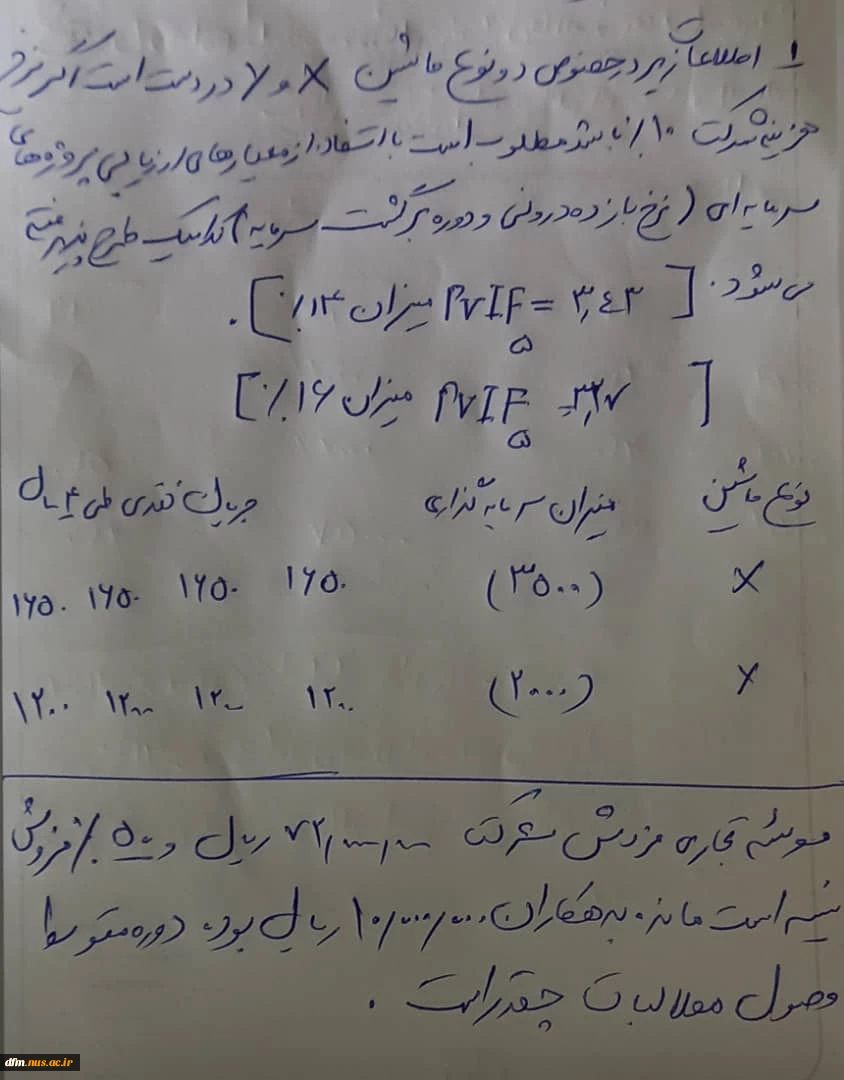 ۱ اطلاعات زیر در خصوص دو نوع ماشین X و Y در دست است اگر نرخ
هزینه شرکت ۱۰٪ باشد مطلوب است با استفاده از معیارهای ارزیابی پروژه‌های
سرمایه‌ای (نرخ بازده درونی و دوره برگشت سرمایه) کدامیک طرح پذیرفته
می شود. [ PVIF₅ = ۳٫۴۳ میزان ۱۴٪ ] .
[ PVIF₅ = ۳٫۲۷ میزان ۱۶٪ ]
نوع ماشین میزان سرمایه گذاری جریان نقدی طی ۴ سال
X (۳۵۰۰) ۱۶۵۰ ۱۶۵۰ ۱۶۵۰ ۱۶۵۰
Y (۲۰۰۰) ۱۲۰۰ ۱۲۰۰ ۱۲۰۰ ۱۲۰۰
موسسه تجاری فروش شرکت ۷۲٫۰۰۰٫۰۰۰ ریال و ۵۰٪ فروش
نسیه است مانده بدهکاران ۱۰٫۰۰۰٫۰۰۰ ریال بود، دوره متوسط
وصول مطالبات چقدر است .
dfm.nus.ac.ir